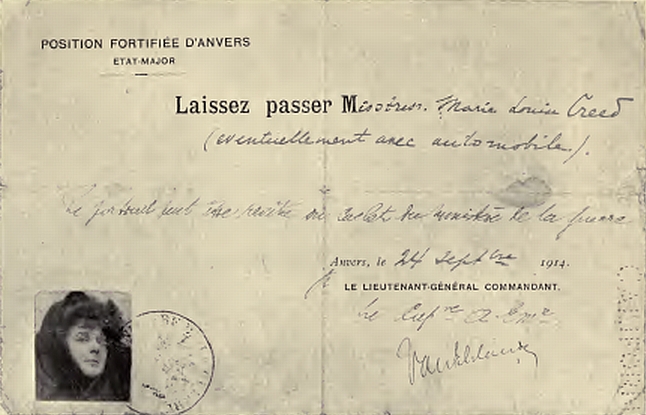 POSITION FORTIFIÉE D'ANVERS
ETAT-MAJOR
Laissez passer Mistress. Marie Louise Creed
(eventuellement avec automobile).
Le portrait doit être revêtu du cachet du ministre de la guerre
Anvers, le 24 septbre 1914.
LE LIEUTENANT-GÉNÉRAL COMMANDANT.